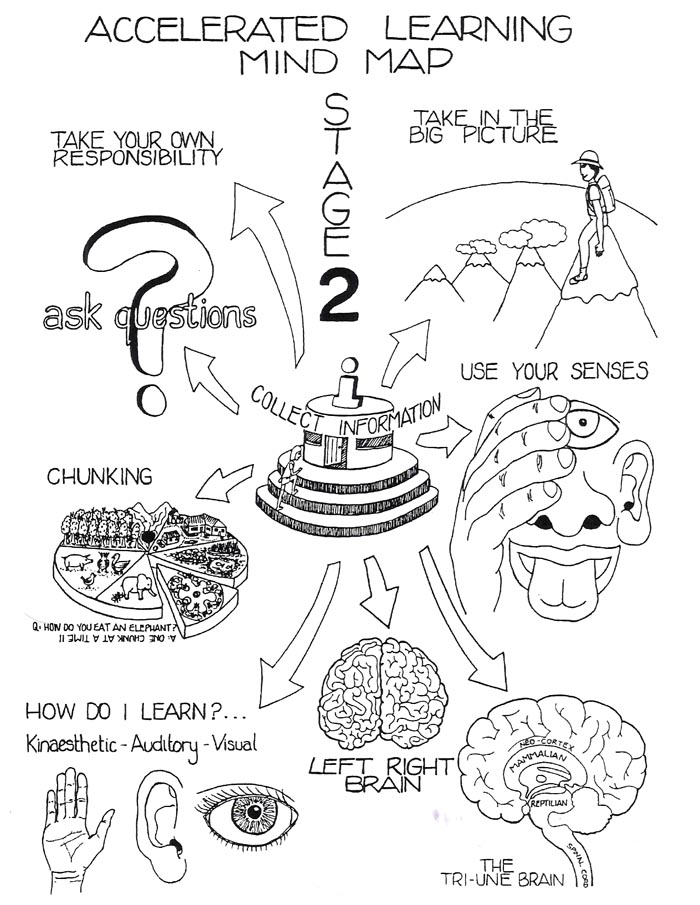 ACCELERATED LEARNING
MIND MAP
STAGE
2
TAKE YOUR OWN
RESPONSIBILITY
TAKE IN THE
BIG PICTURE
ask questions
?
i
COLLECT INFORMATION
USE YOUR SENSES
CHUNKING
Q: HOW DO YOU EAT AN ELEPHANT?
A: ONE CHUNK AT A TIME!!
HOW DO I LEARN?...
Kinaesthetic - Auditory - Visual
LEFT RIGHT
BRAIN
NEO-CORTEX
MAMMALIAN
REPTILIAN
SPINAL CORD
THE
TRI-UNE BRAIN